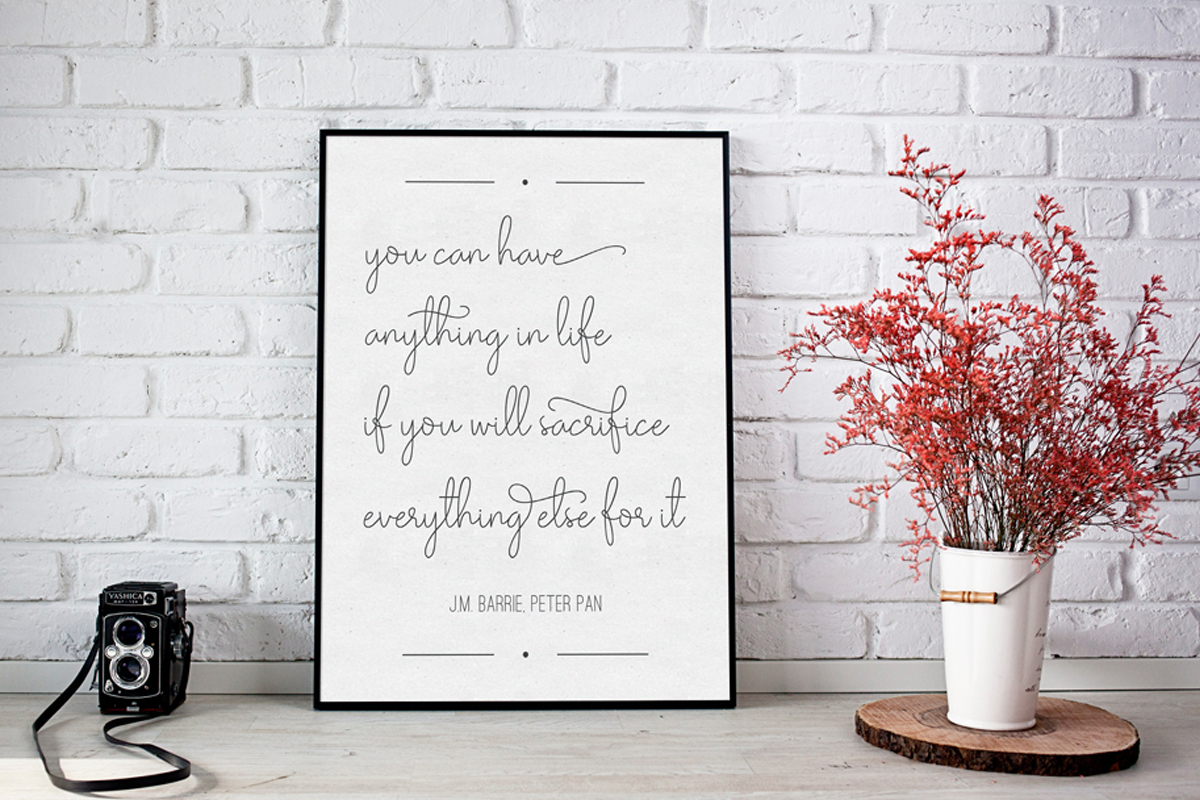 you can have
anything in life
if you will sacrifice
everything else for it
J.M. BARRIE, PETER PAN
YASHICA